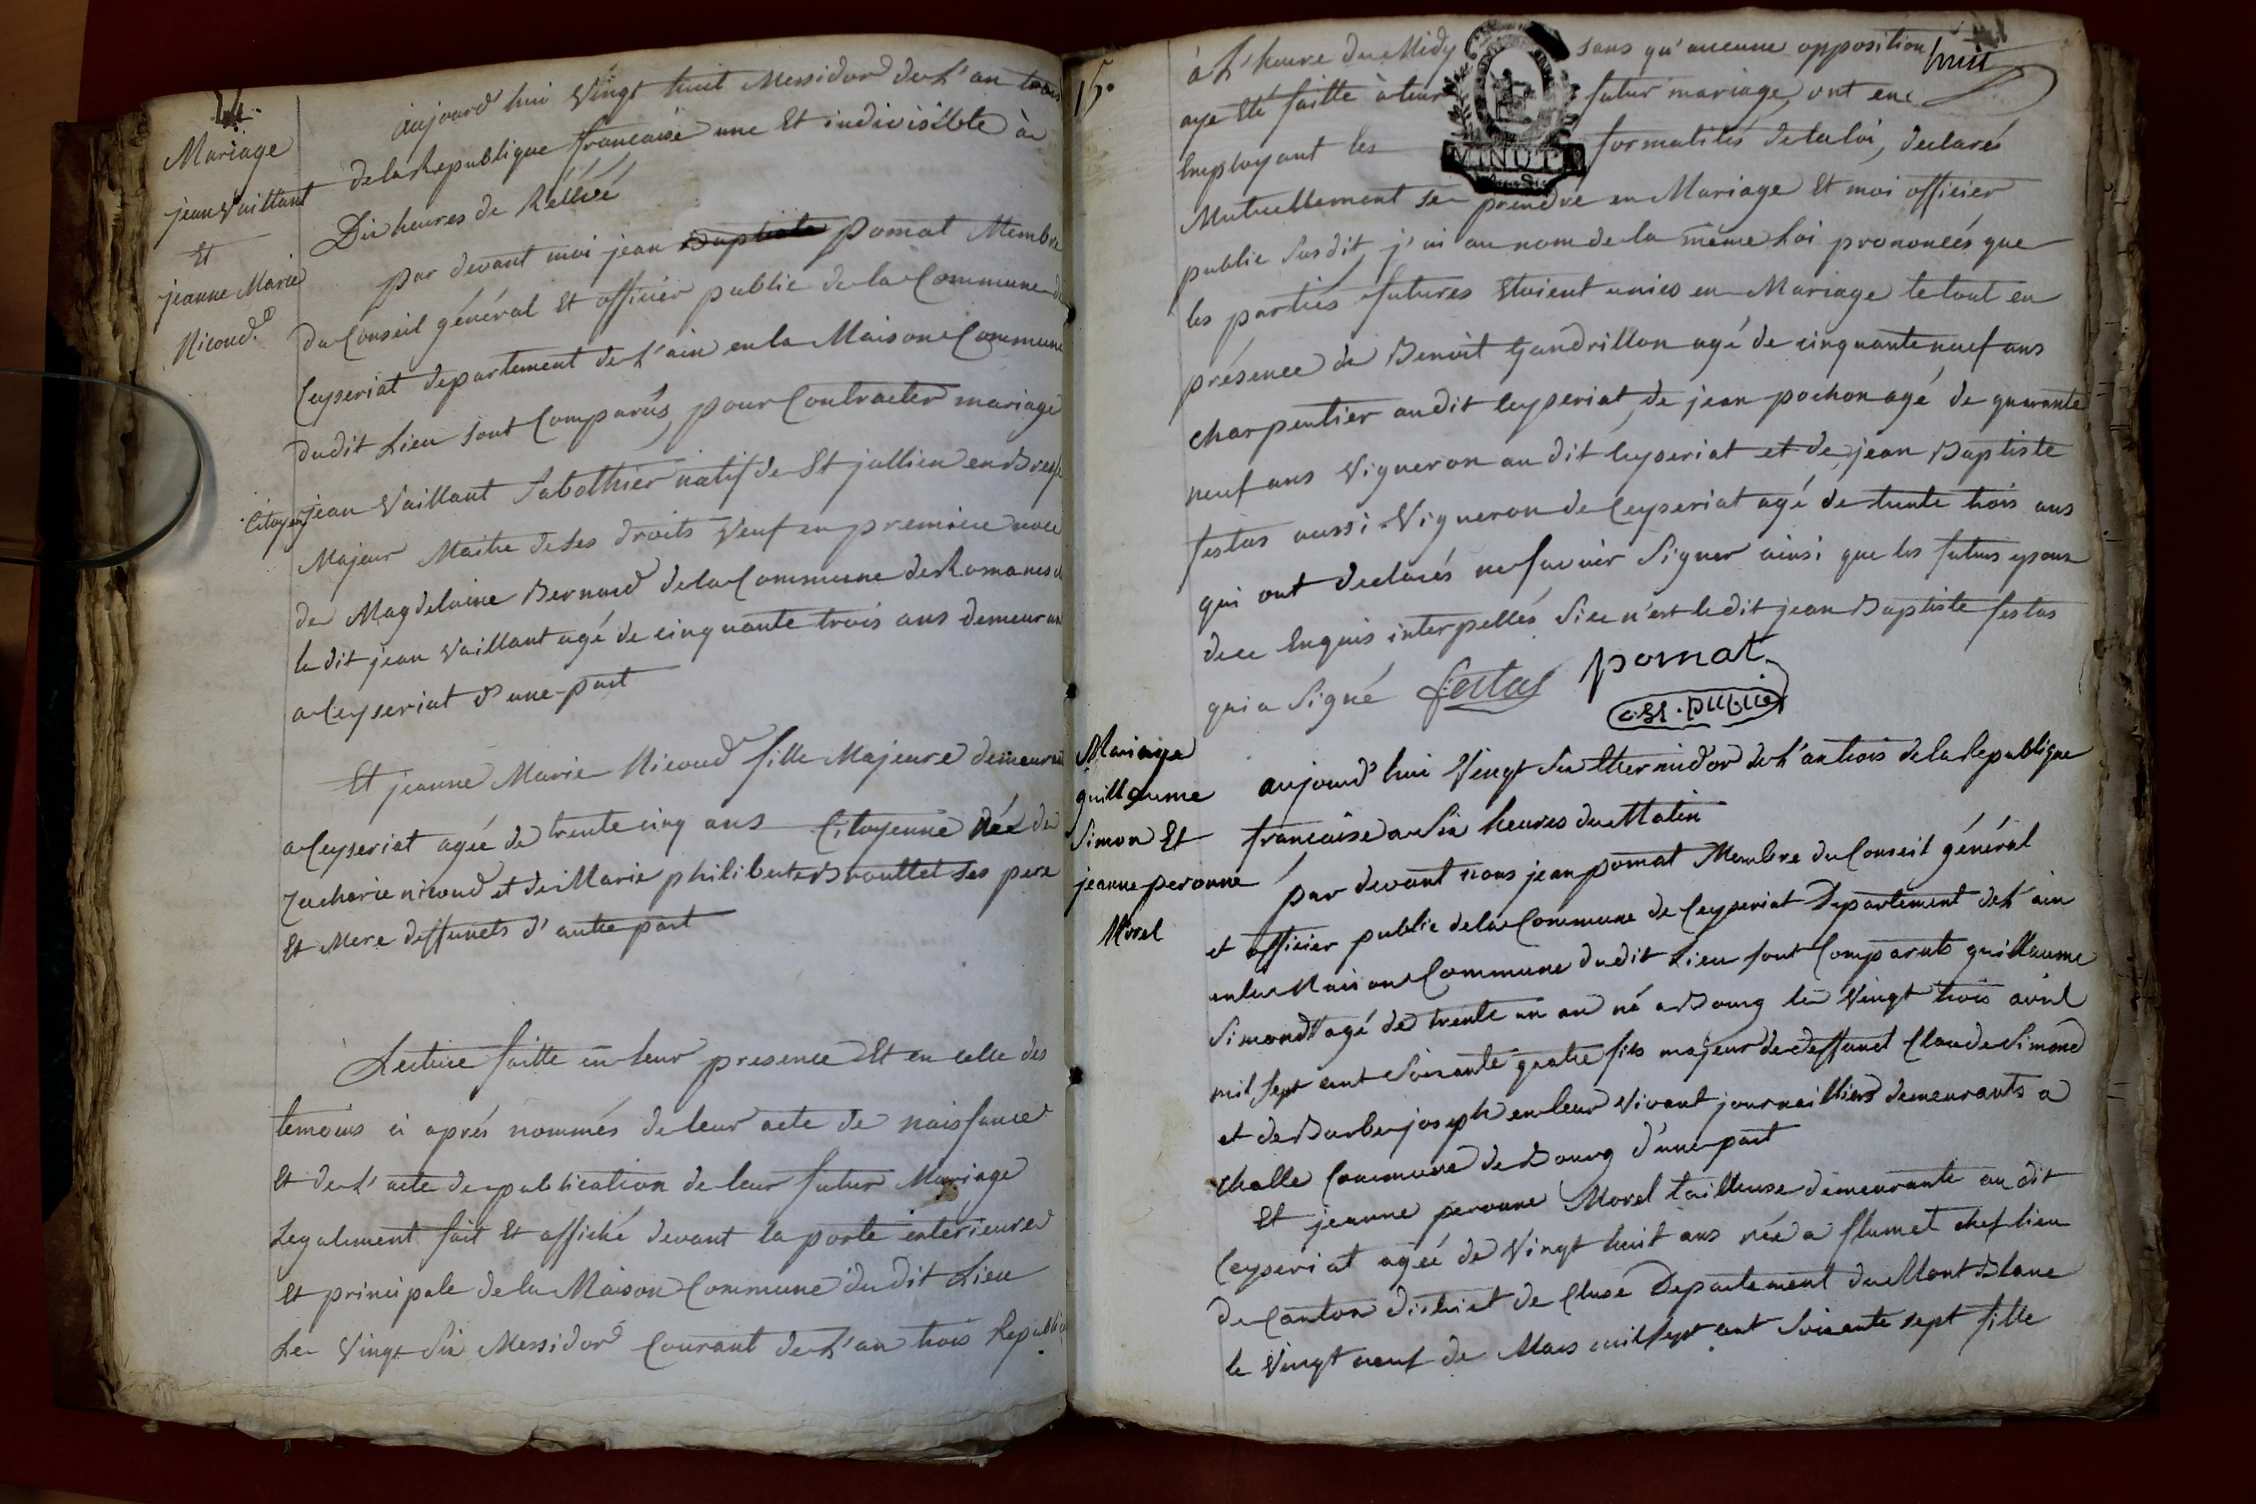 14.
Mariage
jean Vaillant
Et
jeanne Marie
Nicoud.
aujourd'hui Vingt huit Messidor de L'an trois
de la Republique francaise une Et indivisible à
Dix heures de Rélévé
par devant moi jean Baptiste pomat Membre
du Conseil général Et officier public de la Commune de
Ceyseriat departement de L'ain en la Maison Commune
dudit Lieu sont Comparûs pour Contracter mariage
Citoyen jean Vaillant Sabothier natif de St jullien en Bresse
Majeur Maitre de ses droits Veuf en premiere noce
de Magdelaine Bernard de la Commune de Romanes
le dit jean Vaillant agé de cinquante trois ans demeurant
a Ceyseriat d'une part
Et jeanne Marie Nicoud fille Majeure demeurant
a Ceyseriat agée de trente cinq ans Citoyenne Née de
Zacharie nicoud et de Marie philiberte Brouttet ses pere
Et Mere deffunets d'autre part
Lecture faitte en leur presence Et en celle des
temoins ci aprés nommés de leur acte de naissance
Et de L'acte de publication de leur futur Mariage
Legalement fait Et affiché devant la porte exterieure
Et principale de la Maison Commune dudit Lieu
Le Vingt Six Messidor Courant de L'an trois Republic
15.
huit
à L'heure du Midy sans qu'aucune opposition
aye Eté faitte à leur futur mariage, ont en
Employant les formalités de la loi, declarés
Mutuellement se prendre en Mariage Et moi officier
public Susdit, j'ai au nom de la même Loi prononcés que
les parties futures Etoient unies en Mariage le tout en
présence de Benoit Gandrillon agé de cinquante neuf ans
charpentier audit Ceyseriat, de jean pochon agé de quarante
neuf ans Vigneron au dit Ceyseriat et de jean Baptiste
festas aussi Vigneron de Ceyseriat agé de trente trois ans
qui ont declarés ne savoir Signer ainsi que les futurs epoux
de ce Enquis interpellés Si ce n'est le dit jean Baptiste festas
qui a Signé festas pomat
off. public
Mariage
guillaume
Simon Et
jeanne peronne
Morel
aujourd'hui Vingt Six thermidor de L'an trois de la Republique
francaise a Six heures du Matin
par devant nous jean pomat Membre du Conseil général
et officier public de la Commune de Ceyseriat Departement de L'ain
en la Maison Commune dudit Lieu sont Comparuts guillaume
Simond agé de trente un an né a Bourg le Vingt trois avril
mil sept cent soixante quatre fils majeur de deffunct Claude Simond
et de Barbe joseph en leur Vivant journailliers demeurants a
Challe Commune de Bourg d'une part
Et jeanne peronne Morel tailleuse demeurante au dit
Ceyseriat agée de Vingt huit ans née a flumet chef lieu
de Canton district de Cluse Departement du Mont Blanc
le Vingt neuf de Mars mil sept cent soixante sept fille